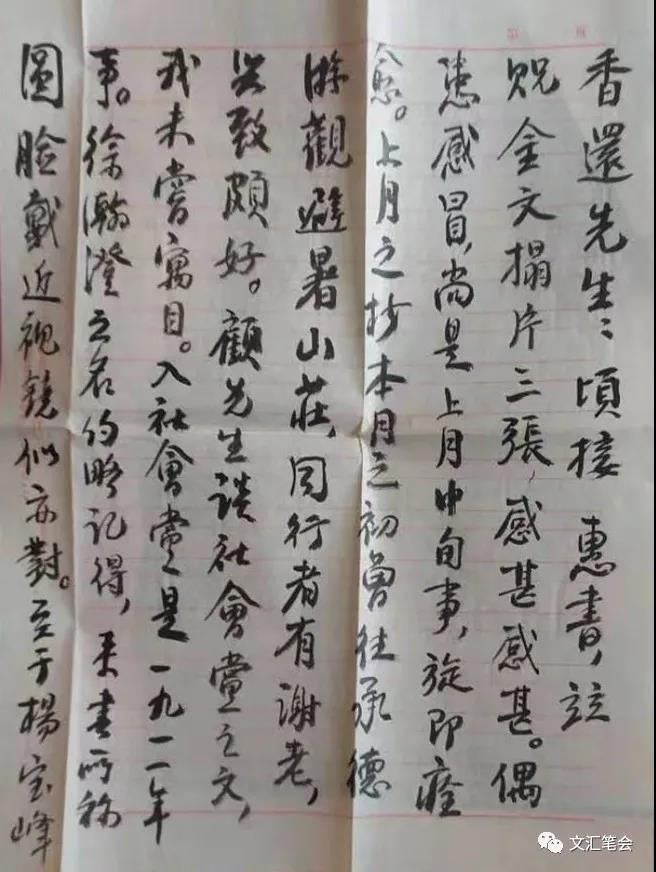 香還先生:頃接 惠書,並
貺金文搨片三張,感甚感甚。偶
患感冒,尚是上月中旬事,旋即痊
愈。上月之抄本月之初曾往承德
游觀避暑山莊,同行者有謝老,
興致頗好。顧先生談社會黨之文,
我未嘗寓目。入社會黨是一九一一年
事。徐瀚澄之名約略記得,來書所稱
圓臉戴近視鏡似亦對。至于楊宝峰
文汇笔会